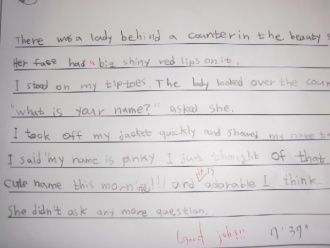 There was a lady behind a counter in the beauty
Her face had a big shiny red lips on it.
I stood on my tiptoes. The lady looked over the coun
"what is your name?" asked she.
I took off my jacket quickly and showed my name
I said "my name is pinky I just thought of that
cute name this morning!!! and adorable I think
She didn't ask any more question.
Good job!!! 7'37"